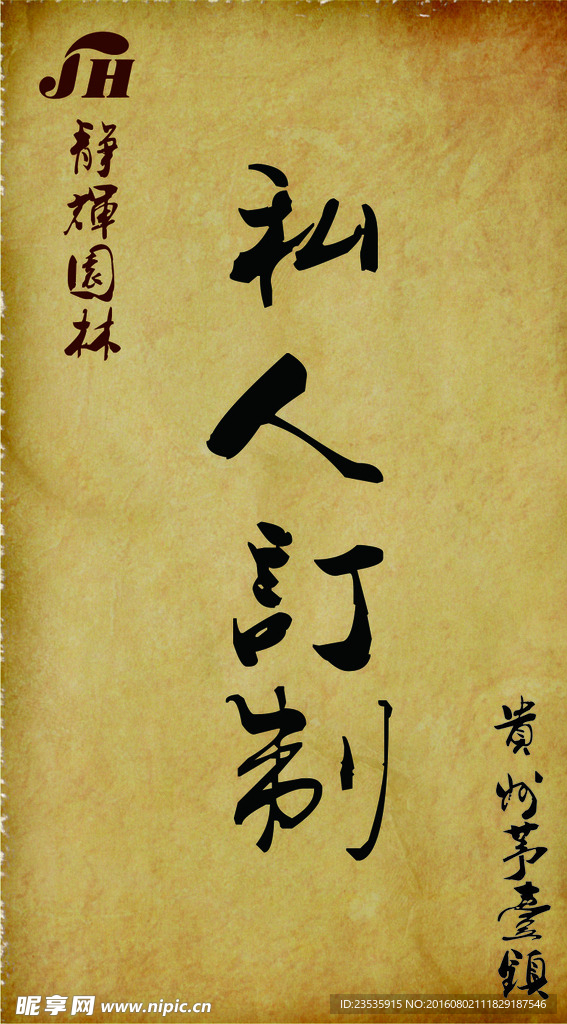 JH
靜輝園林
私人訂制
貴州茅臺鎮
昵享网 www.nipic.cn
ID:23535915 NO:20160802111829187546